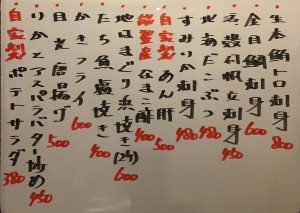 生本鮪トロ刺身 800
金目鯛刺身 600
活〆帆立刺身 450
北海たこぶつ 480
すみいか刺身 480
自家製 あん肝 500
能登産 なまこ酢 400
地はまぐり浜焼き(2ヶ) 600
たち魚塩焼き 400
かきフライ 600
目光唐揚げ 500
りかとアスパラバター炒め 450
自家製 ポテトサラダ 380